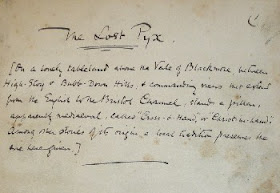 The Lost Pyx.
[On a lonely tableland above the Vale of Blackmore between
High-Stoy & Bubb-Down Hills, & commanding views that extend
from the English to the Bristol Channel, stands a pillar,
apparently mediæval, called "Cross-&-Hand, or Christ-in-Hand.
Among other stories of its origin a local tradition preserves the
one here given.]